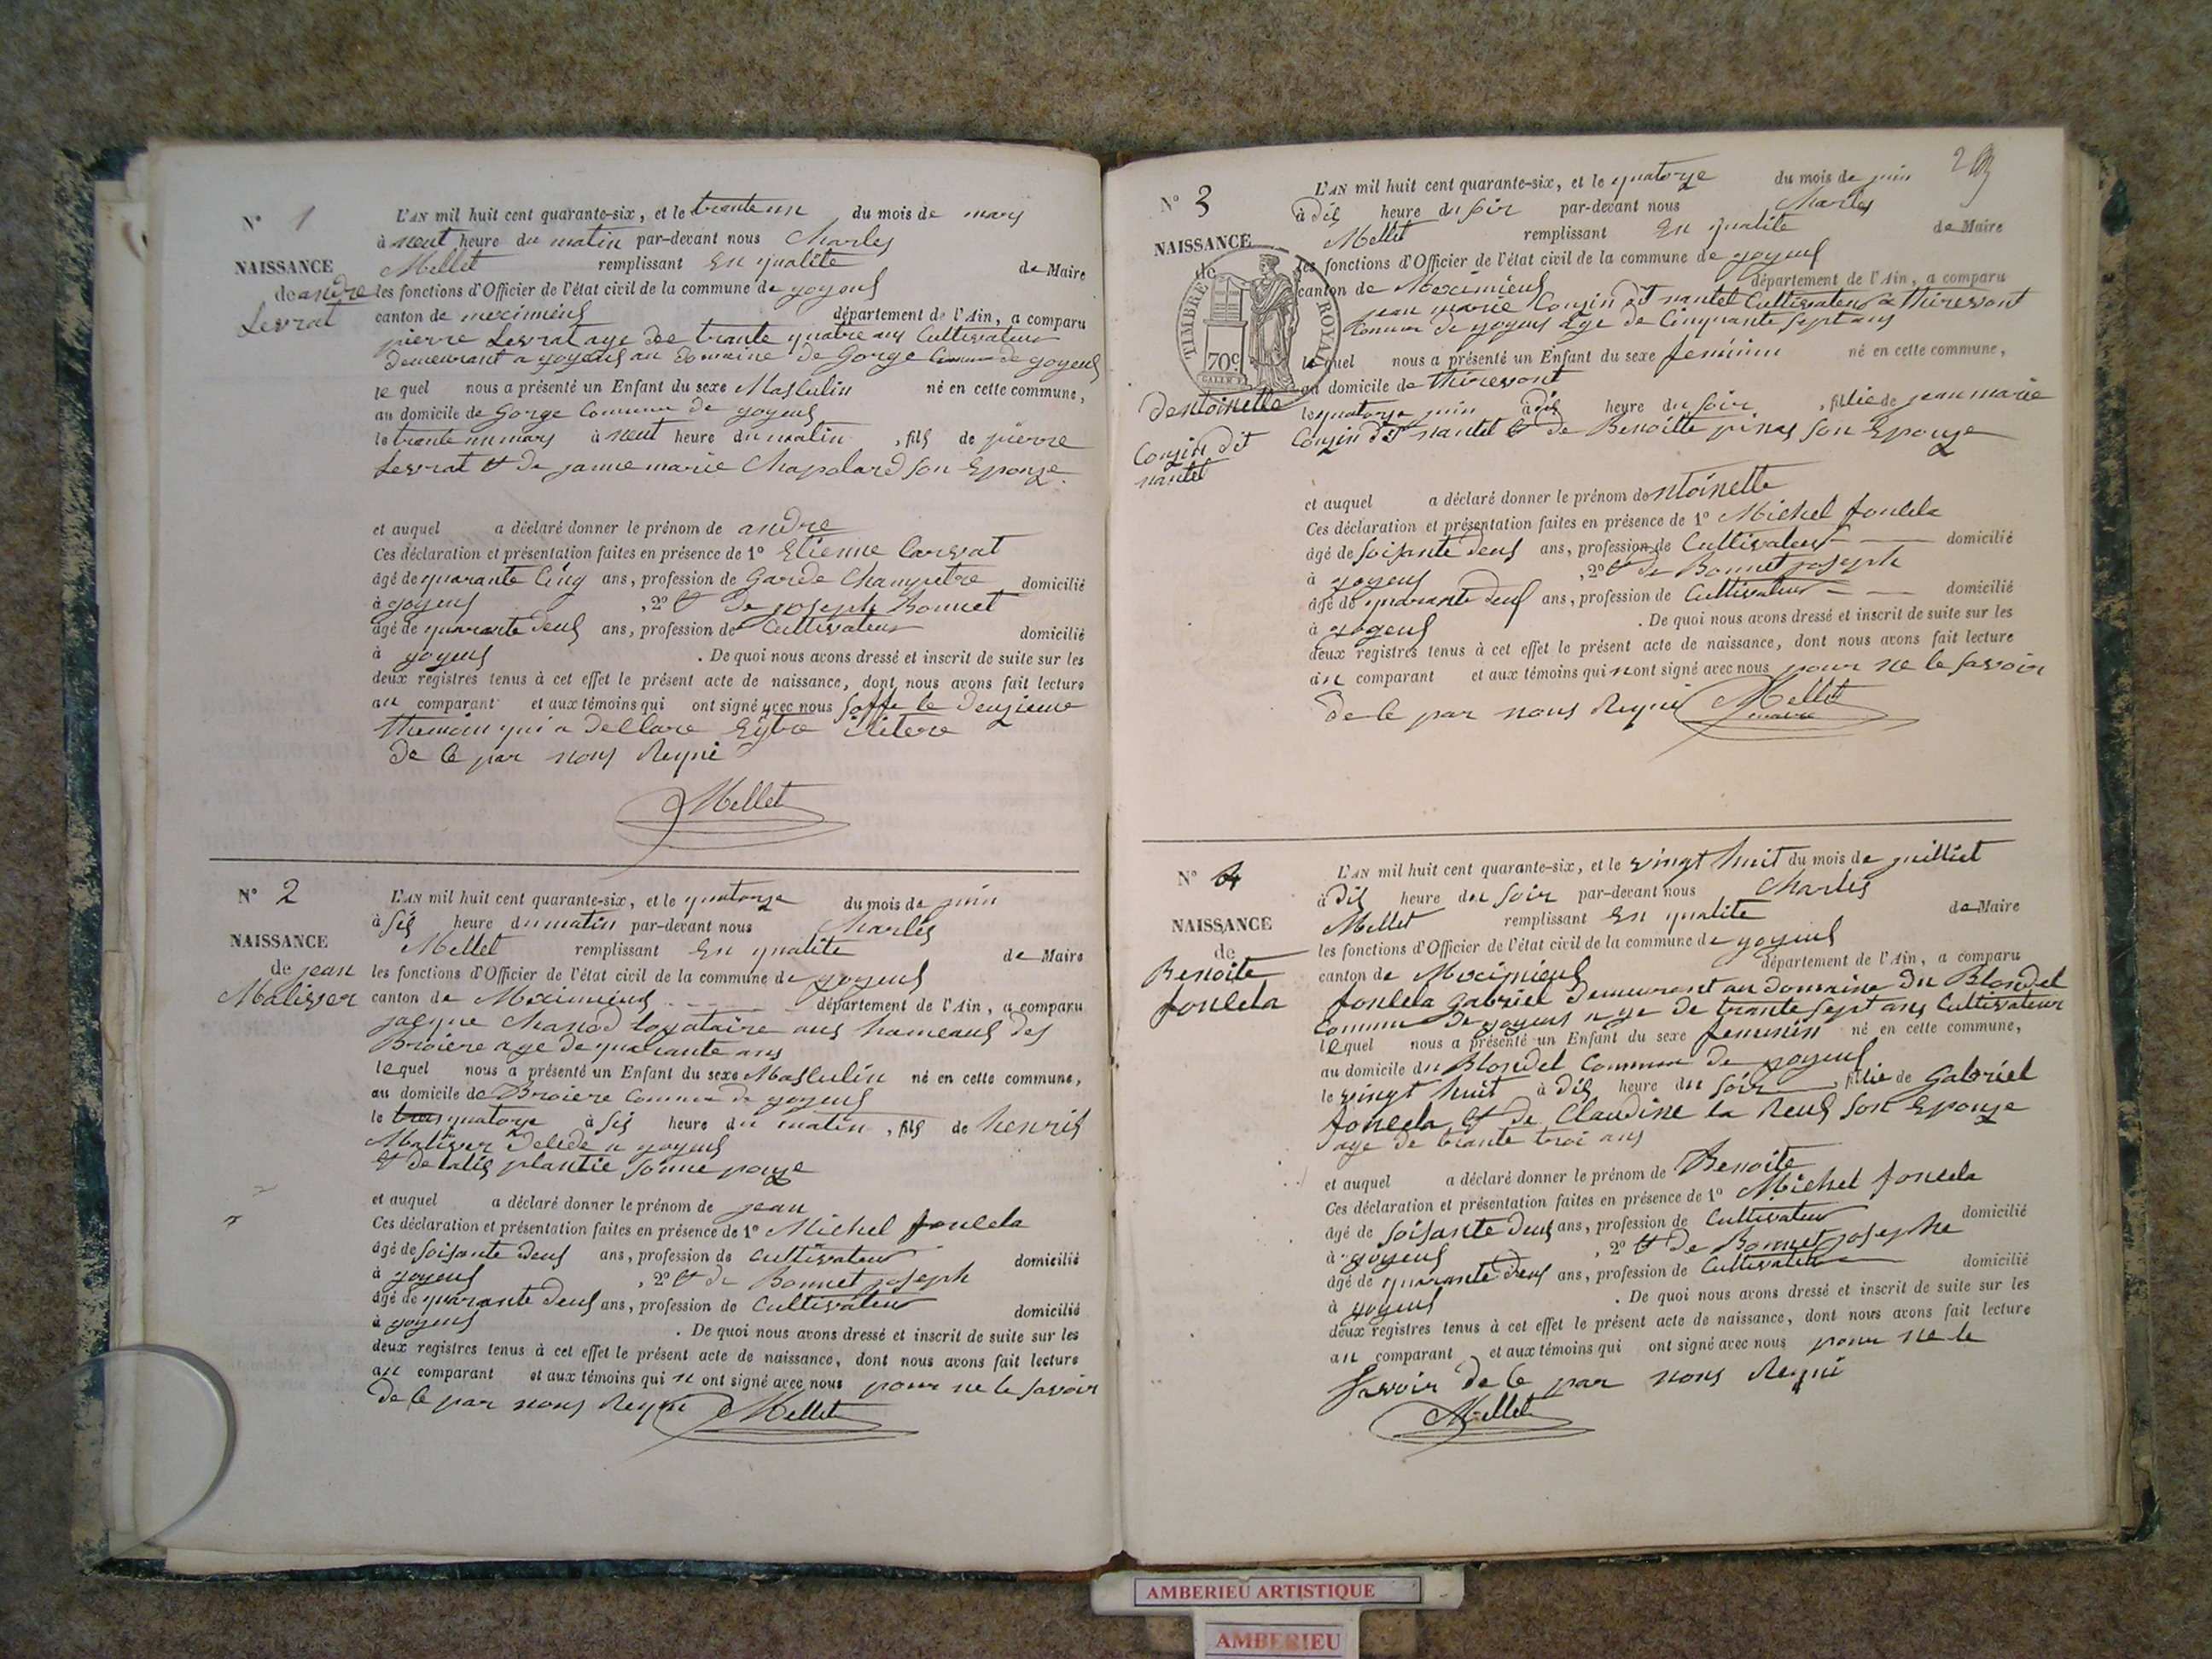 N° 1
NAISSANCE
de andre
Levrat
L'AN mil huit cent quarante-six, et le trante un du mois de mars
à neuf heure du matin par-devant nous Charles
Mellet remplissant En qualite de Maire
les fonctions d'Officier de l'état civil de la commune de joyeus
canton de meximieus département de l'Ain, a comparu
pierre Levrat age de trante quatre ans Cultivateur
demeurant a joyeus au domaine de Gorge Commune de joyeus
le quel nous a présenté un Enfant du sexe Masculin né en cette commune,
au domicile de Gorge Commune de joyeus
le trante un mars à neuf heure du matin , fils de pierre
Levrat et de janne marie Chapolard son Epouze
et auquel a déclaré donner le prénom de andre
Ces déclaration et présentation faites en présence de 1° Etienne Carvat
âgé de quarante Cinq ans, profession de Garde Champetre domicilié
à joyeus , 2° et de joseph Bonnet
âgé de quarante deus ans, profession de Cultivateur domicilié
à joyeus . De quoi nous avons dressé et inscrit de suite sur les
deux registres tenus à cet effet le présent acte de naissance, dont nous avons fait lecture
au comparant et aux témoins qui ont signé avec nous soffe le deuzieme
themoin qui a declare
de ce par nous Requi
Mellet
N° 2
NAISSANCE
de jean
Malisser
L'AN mil huit cent quarante-six, et le quatorze du mois de juin
à sis heure du matin par-devant nous Charles
Mellet remplissant En qualite de Maire
les fonctions d'Officier de l'état civil de la commune de joyeus
canton de Meximieus département de l'Ain, a comparu
jacque Chanod locataire aus hameaus des
Broiere age de quarante ans
lequel nous a présenté un Enfant du sexe Masculin né en cette commune,
au domicile de Broiere Commune de joyeus
le quatorze à sis heure du matin , fils de henris
Malisser a joyeus
et de plantie
et auquel a déclaré donner le prénom de jean
Ces déclaration et présentation faites en présence de 1° Michel foncela
âgé de soisante deus ans, profession de Cultivateur domicilié
à joyeus , 2° et de Bonnet joseph
âgé de quarante deus ans, profession de Cultivateur domicilié
à joyeus . De quoi nous avons dressé et inscrit de suite sur les
deux registres tenus à cet effet le présent acte de naissance, dont nous avons fait lecture
au comparant et aux témoins qui n ont signé avec nous pour ne le savoir
de ce par nous Requi Mellet
N° 3
NAISSANCE
de
dentoinette
Conzin dit
nantet
TIMBRE ROYAL
70c
L'AN mil huit cent quarante-six, et le quatorze du mois de juin
à dis heure du soir par-devant nous Charles
Mellet remplissant En qualite de Maire
les fonctions d'Officier de l'état civil de la commune de joyeus
canton de Meximieus département de l'Ain, a comparu
jean marie Conzin dit nantet Cultivateur a thiressont
Commune de joyeus age de Cinquante sept ans
lequel nous a présenté un Enfant du sexe feminin né en cette commune,
au domicile de thiressont
le quatorze juin à dis heure du soir , fillie de jean marie
Conzin dit nantet et de Benoitte pinas son Epouze
et auquel a déclaré donner le prénom dentoinette
Ces déclaration et présentation faites en présence de 1° Michel foncela
âgé de soisante deus ans, profession de Cultivateur domicilié
à joyeus , 2° et de Bonnet joseph
âgé de quarante deus ans, profession de Cultivateur domicilié
à joyeus . De quoi nous avons dressé et inscrit de suite sur les
deux registres tenus à cet effet le présent acte de naissance, dont nous avons fait lecture
au comparant et aux témoins qui nont signé avec nous pour ne le savoir
de ce par nous Requi Mellet
maire
N° 4
NAISSANCE
de
Benoite
foncela
L'AN mil huit cent quarante-six, et le vingt huit du mois de juilliet
à dis heure du soir par-devant nous Charles
Mellet remplissant En qualite de Maire
les fonctions d'Officier de l'état civil de la commune de joyeus
canton de Meximieus département de l'Ain, a comparu
foncela Gabriel demeurant au domaine du Blondel
Commune de joyeus age de trante sept ans Cultivateur
lequel nous a présenté un Enfant du sexe feminin né en cette commune,
au domicile du Blondel Commune de joyeus
le vingt huit à dis heure du soir , fillie de Gabriel
foncela et de Claudine la Reus son Epouze
age de trante troi ans
et auquel a déclaré donner le prénom de Benoite
Ces déclaration et présentation faites en présence de 1° Michel foncela
âgé de soisante deus ans, profession de Cultivateur domicilié
à joyeus , 2° et de Bonnet josephe
âgé de quarante deus ans, profession de Cultivateur domicilié
à joyeus . De quoi nous avons dressé et inscrit de suite sur les
deux registres tenus à cet effet le présent acte de naissance, dont nous avons fait lecture
au comparant et aux témoins qui ont signé avec nous pour ne le
savoir de ce par nous Requi
Mellet
AMBERIEU ARTISTIQUE
AMBERIEU